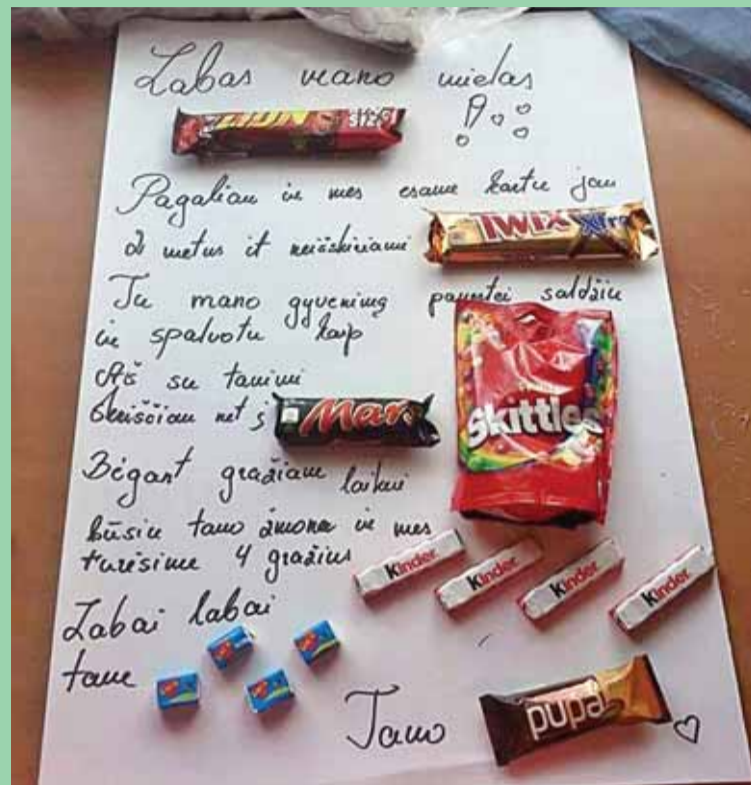 Labas mano mielas
LION
Pagaliau ir mes esame kartu jau
2 metus it neišskiriami TWIX Xtra
Tu mano gyvenimą pavertei saldžiu
ir spalvotu kaip
Skittles
Aš su tavimi
skrisčiau net į Mars
Bėgant gražiam laikui
būsiu tavo žmona ir mes
turėsime 4 gražius
Kinder Kinder Kinder Kinder
Labai labai
tave
Tavo pupa